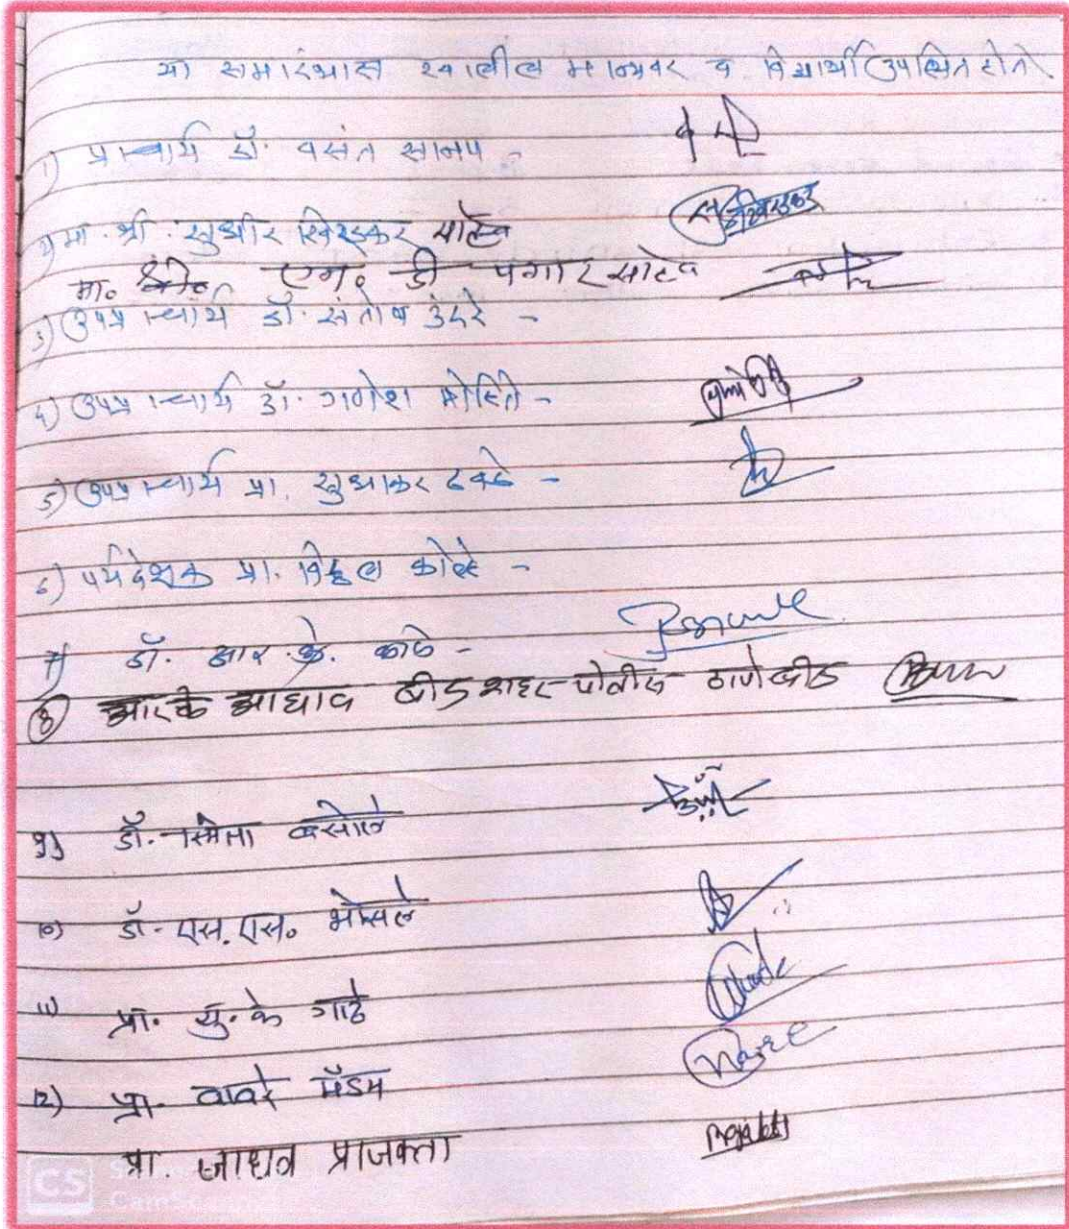 या समारंभास खालील मान्यवर व विद्यार्थी उपस्थित होते.
1) प्राचार्य डॉ. वसंत सानप -
2) मा. श्री. सुधीर खिरडकर साहेब
मा. एम. डी पगार साहेब
3) उपप्राचार्य डॉ. संतोष उंदरे -
4) उपप्राचार्य डॉ. गणेश मोहिते -
5) उपप्राचार्य प्रा. सुधाकर ढवळे -
6) पर्यवेक्षक प्रा. विठ्ठल कोल्हे -
7) डॉ. आर. के. काळे -
8 आरके आघाव बीड शहर पोलीस ठाणे बीड
9) डॉ. स्मिता
10) डॉ. एस. एस. भोसले
11) प्रा. यु. के गाडे
12) प्रा. वावरे मॅडम
प्रा. जाधव प्राजक्ता
CS